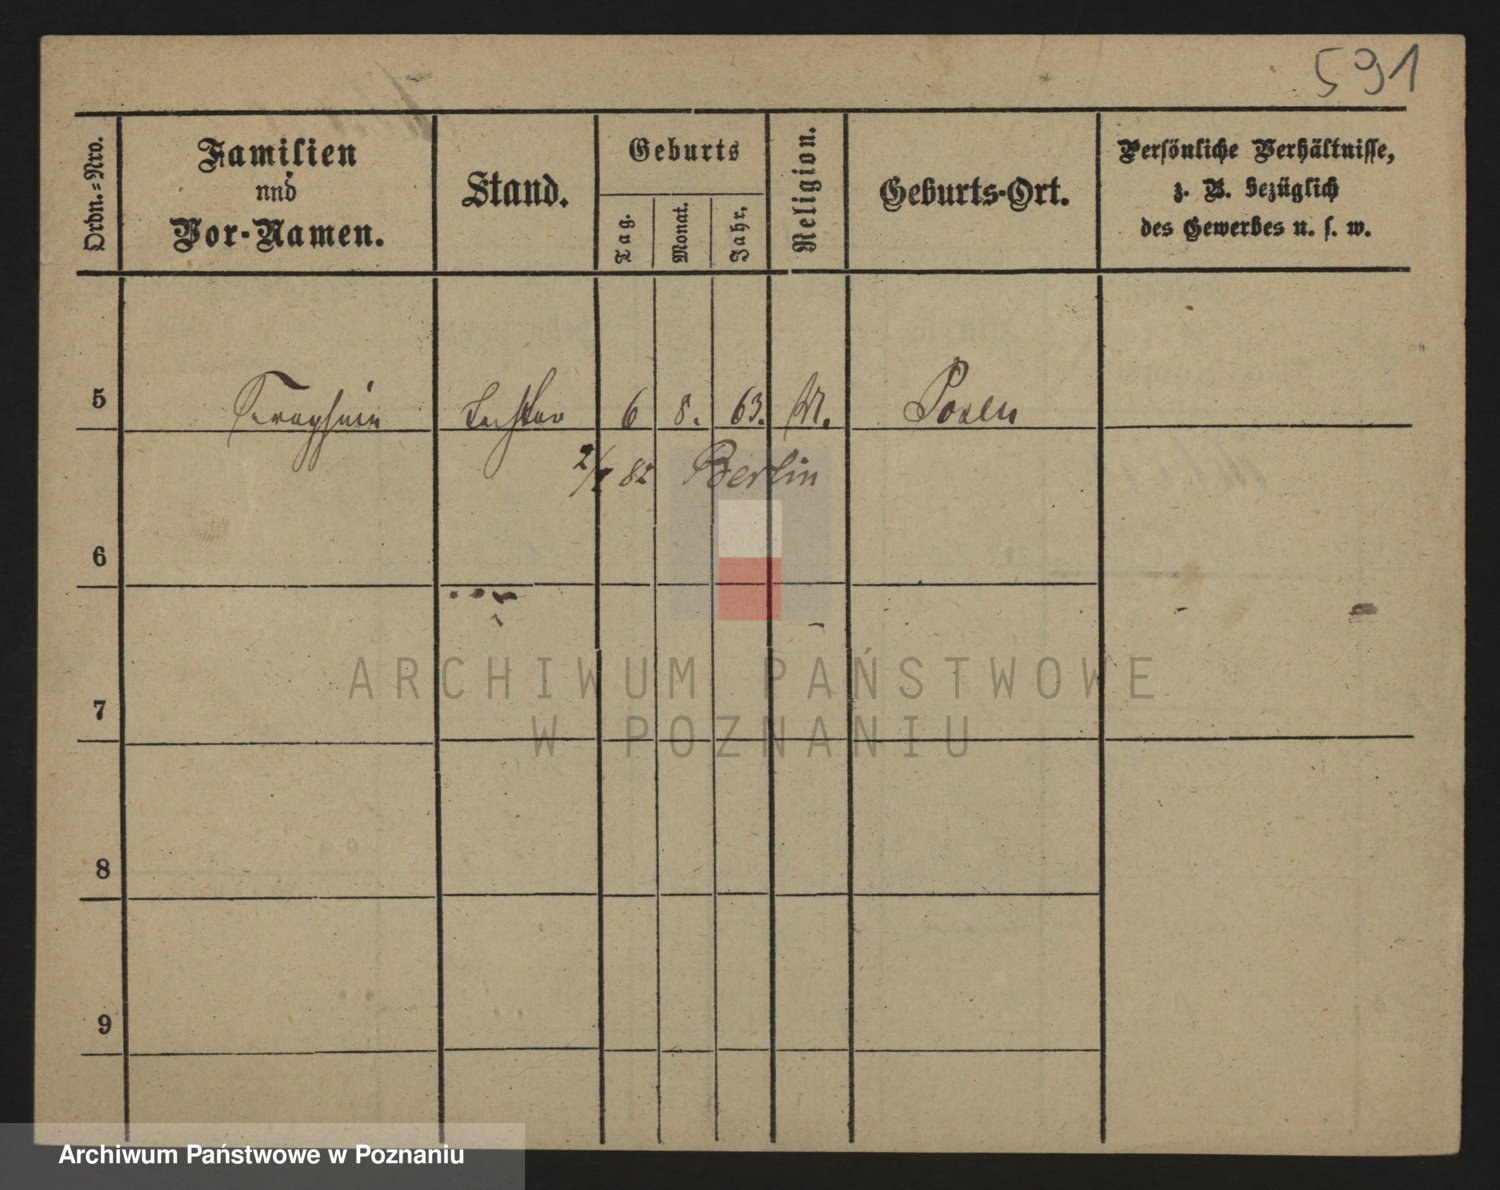 591
Ordn.=Nro.
Familien
und
Vor-Namen.
Stand.
Geburts
Tag.
Monat.
Jahr,
Religion.
Geburts-Ort.
Persönliche Verhältnisse,
z. B. bezüglich
des Gewerbes u. s. w.
5 Seraphine Tochter 6 8. 63. Posen
82 Berlin
6
7
8
9
ARCHIWUM PAŃSTWOWE
W POZNANIU
Archiwum Państwowe w Poznaniu